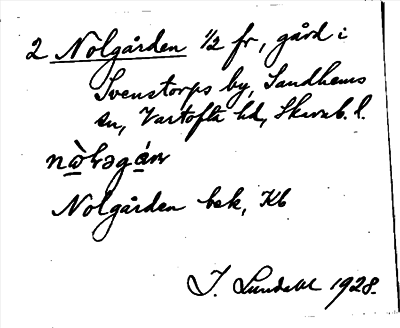 2 Nolgården 1/2 fr, gård i
Svenstorps by, Sandhems
sn, Vartofta hd, Skarab. l.
Nolgården bek, Kb
I. Lundahl 1928.